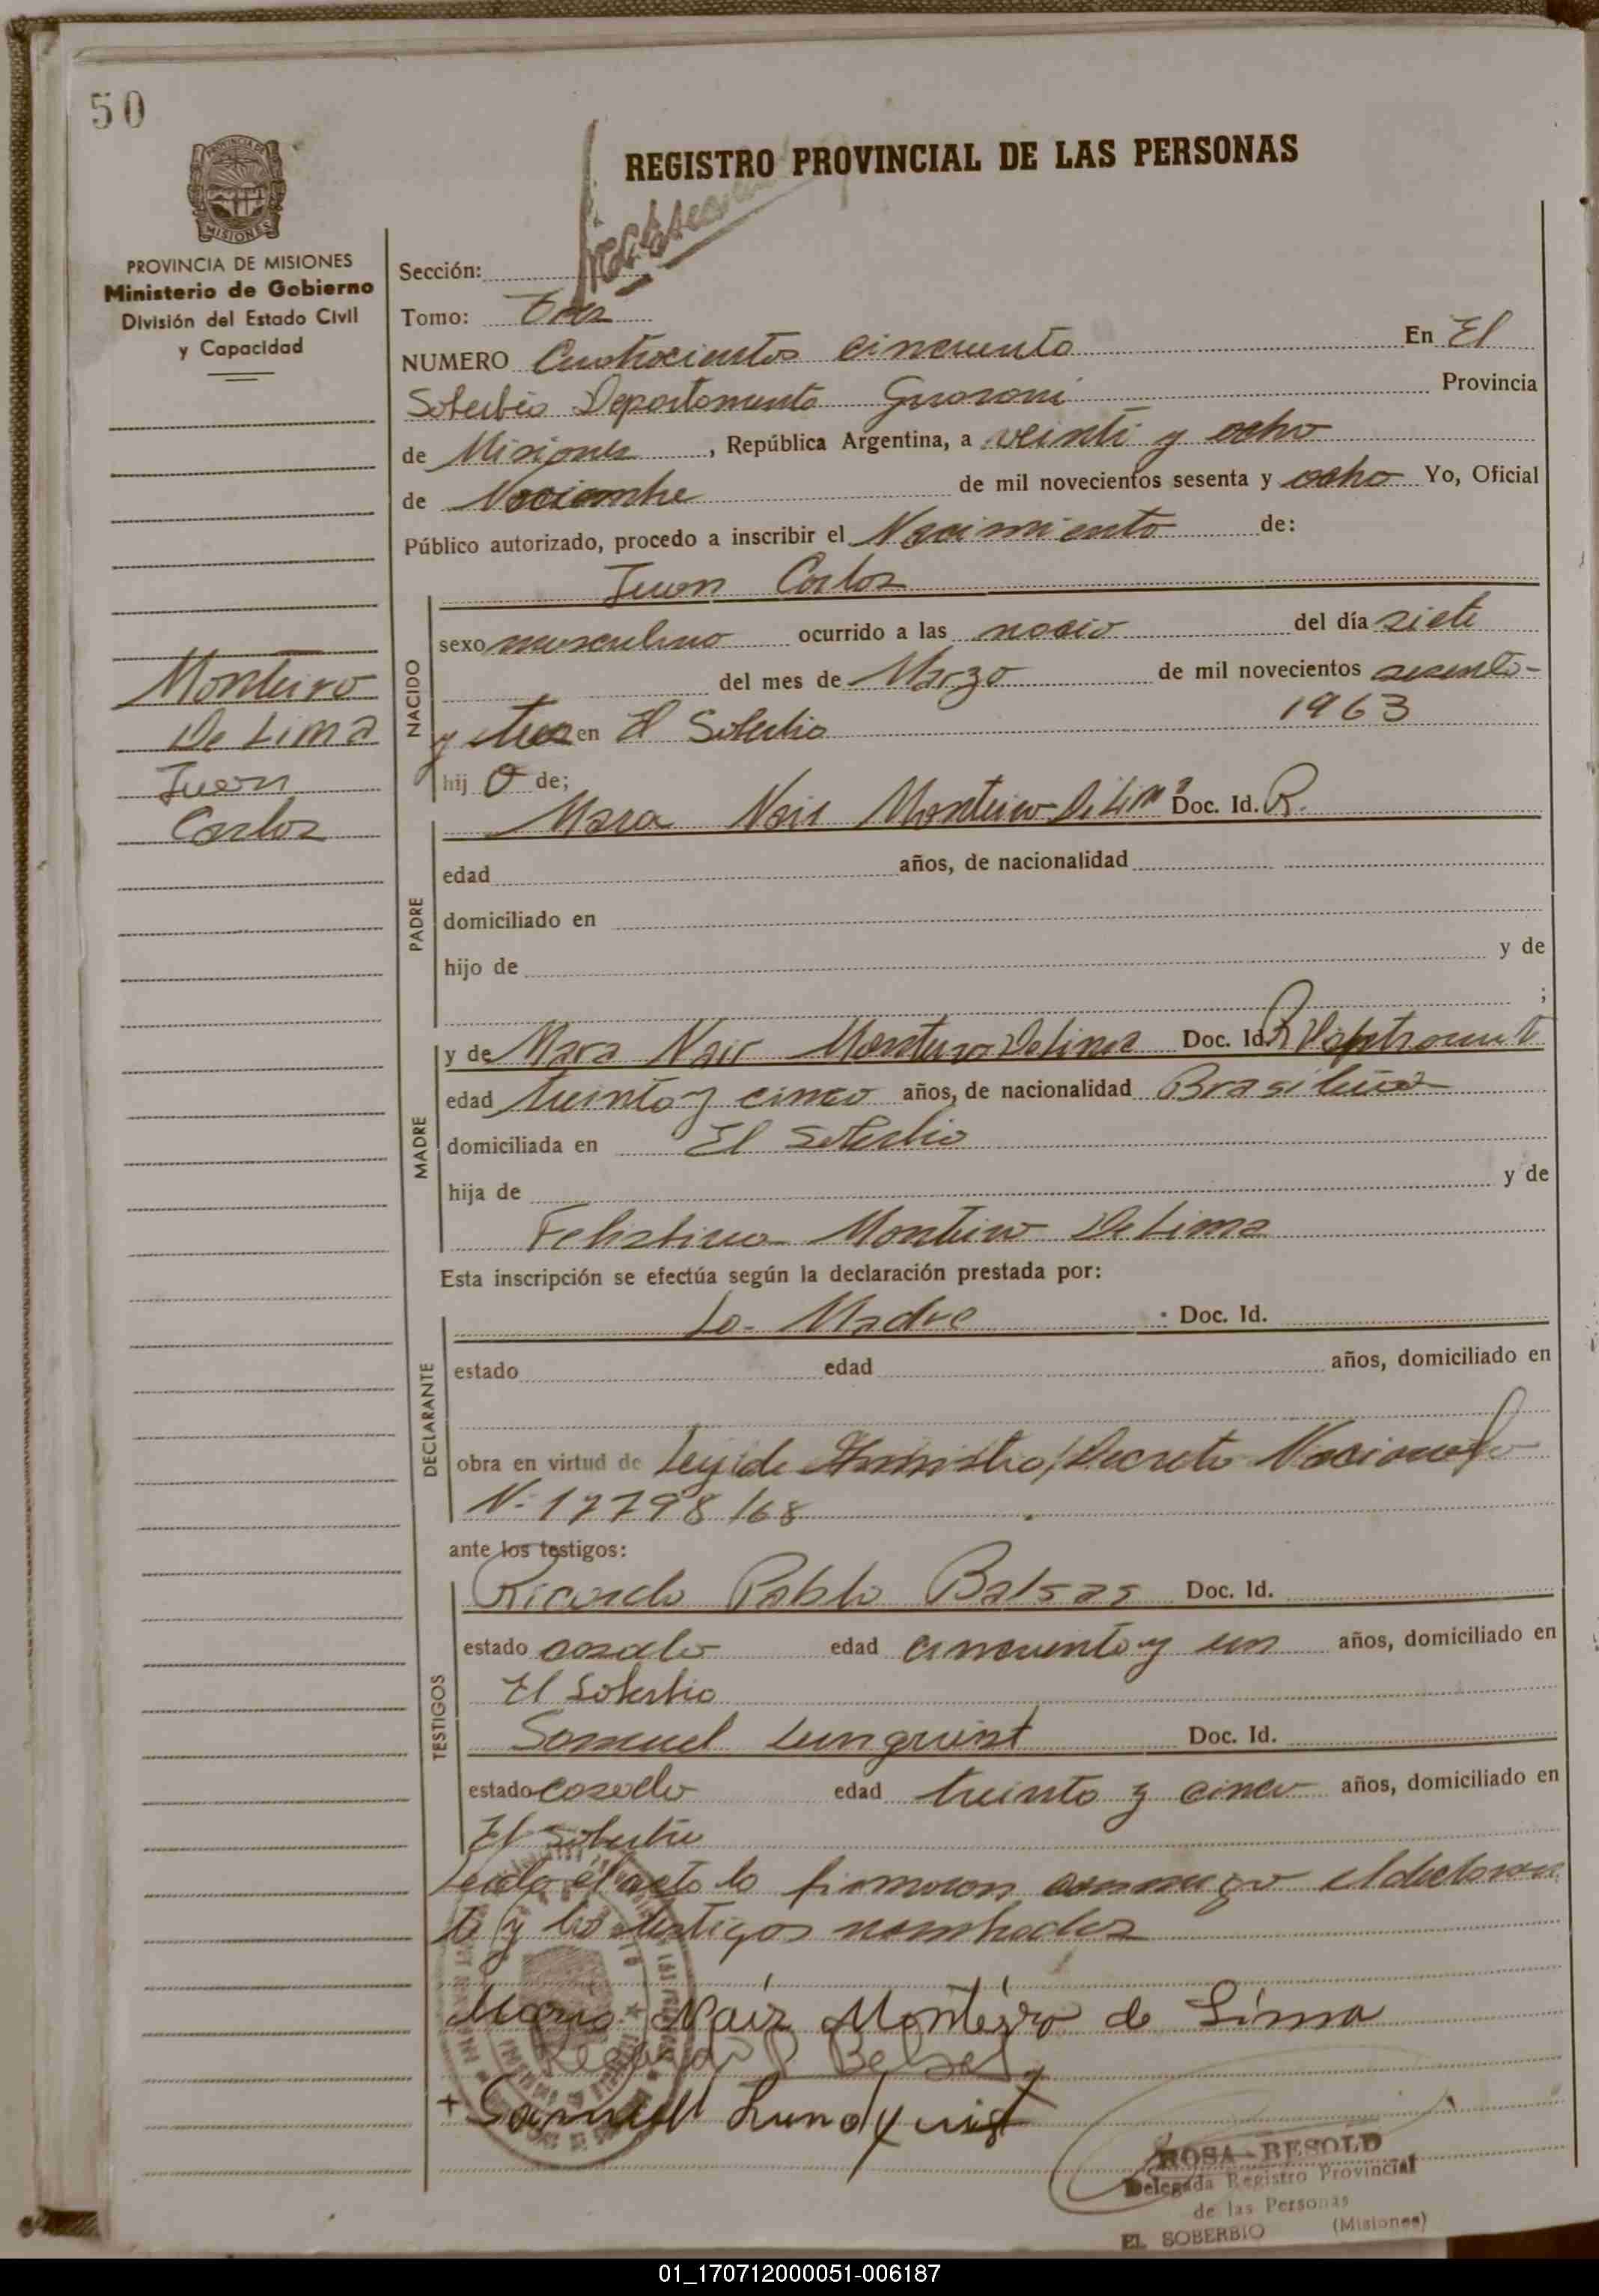 50
REGISTRO PROVINCIAL DE LAS PERSONAS
PROVINCIA DE MISIONES
MISIONES
PROVINCIA DE MISIONES
Ministerio de Gobierno
División del Estado Civil
y Capacidad
Sección:
Tomo: Tres
NUMERO Cuatrocientos cincuenta En El
Soberbio Departamento Guarani Provincia
de Misiones, República Argentina, a veinti y ocho
de Noviembre de mil novecientos sesenta y ocho Yo, Oficial
Público autorizado, procedo a inscribir el Nacimiento de:
Juan Carlos
NACIDO
sexo masculino ocurrido a las nacio del día siete
del mes de Marzo de mil novecientos sesenta-
y tres en El Soberbio 1963
hij o de;
Monteiro
De Lima
Juan
Carlos
PADRE
Mara Nair Monteiro De Lima Doc. Id. R.
edad años, de nacionalidad
domiciliado en
hijo de y de
;
MADRE
y de Mara Nair Monteiro De Lima Doc. Id. R
edad treinta y cinco años, de nacionalidad Brasileña
domiciliada en El Soberbio
hija de y de
Monteiro De Lima
Esta inscripción se efectúa según la declaración prestada por:
DECLARANTE
La Madre Doc. Id.
estado edad años, domiciliado en
obra en virtud de Ley de Decreto Nacional
N. 17798/68
ante los testigos:
TESTIGOS
Ricardo Pablo Balsas Doc. Id.
estado casado edad cincuenta y un años, domiciliado en
El Soberbio
Samuel Lunquist Doc. Id.
estado casado edad treinta y cinco años, domiciliado en
El Soberbio
Leida el acta la firmaron conmigo el declaran
te y los testigos nombrados
Maria Naír Montéiro de Lima
+ Samuell Lundquist
ROSA BESOLD
Delegada Registro Provincial
de las Personas
EL SOBERBIO (Misiones)
01_170712000051-006187